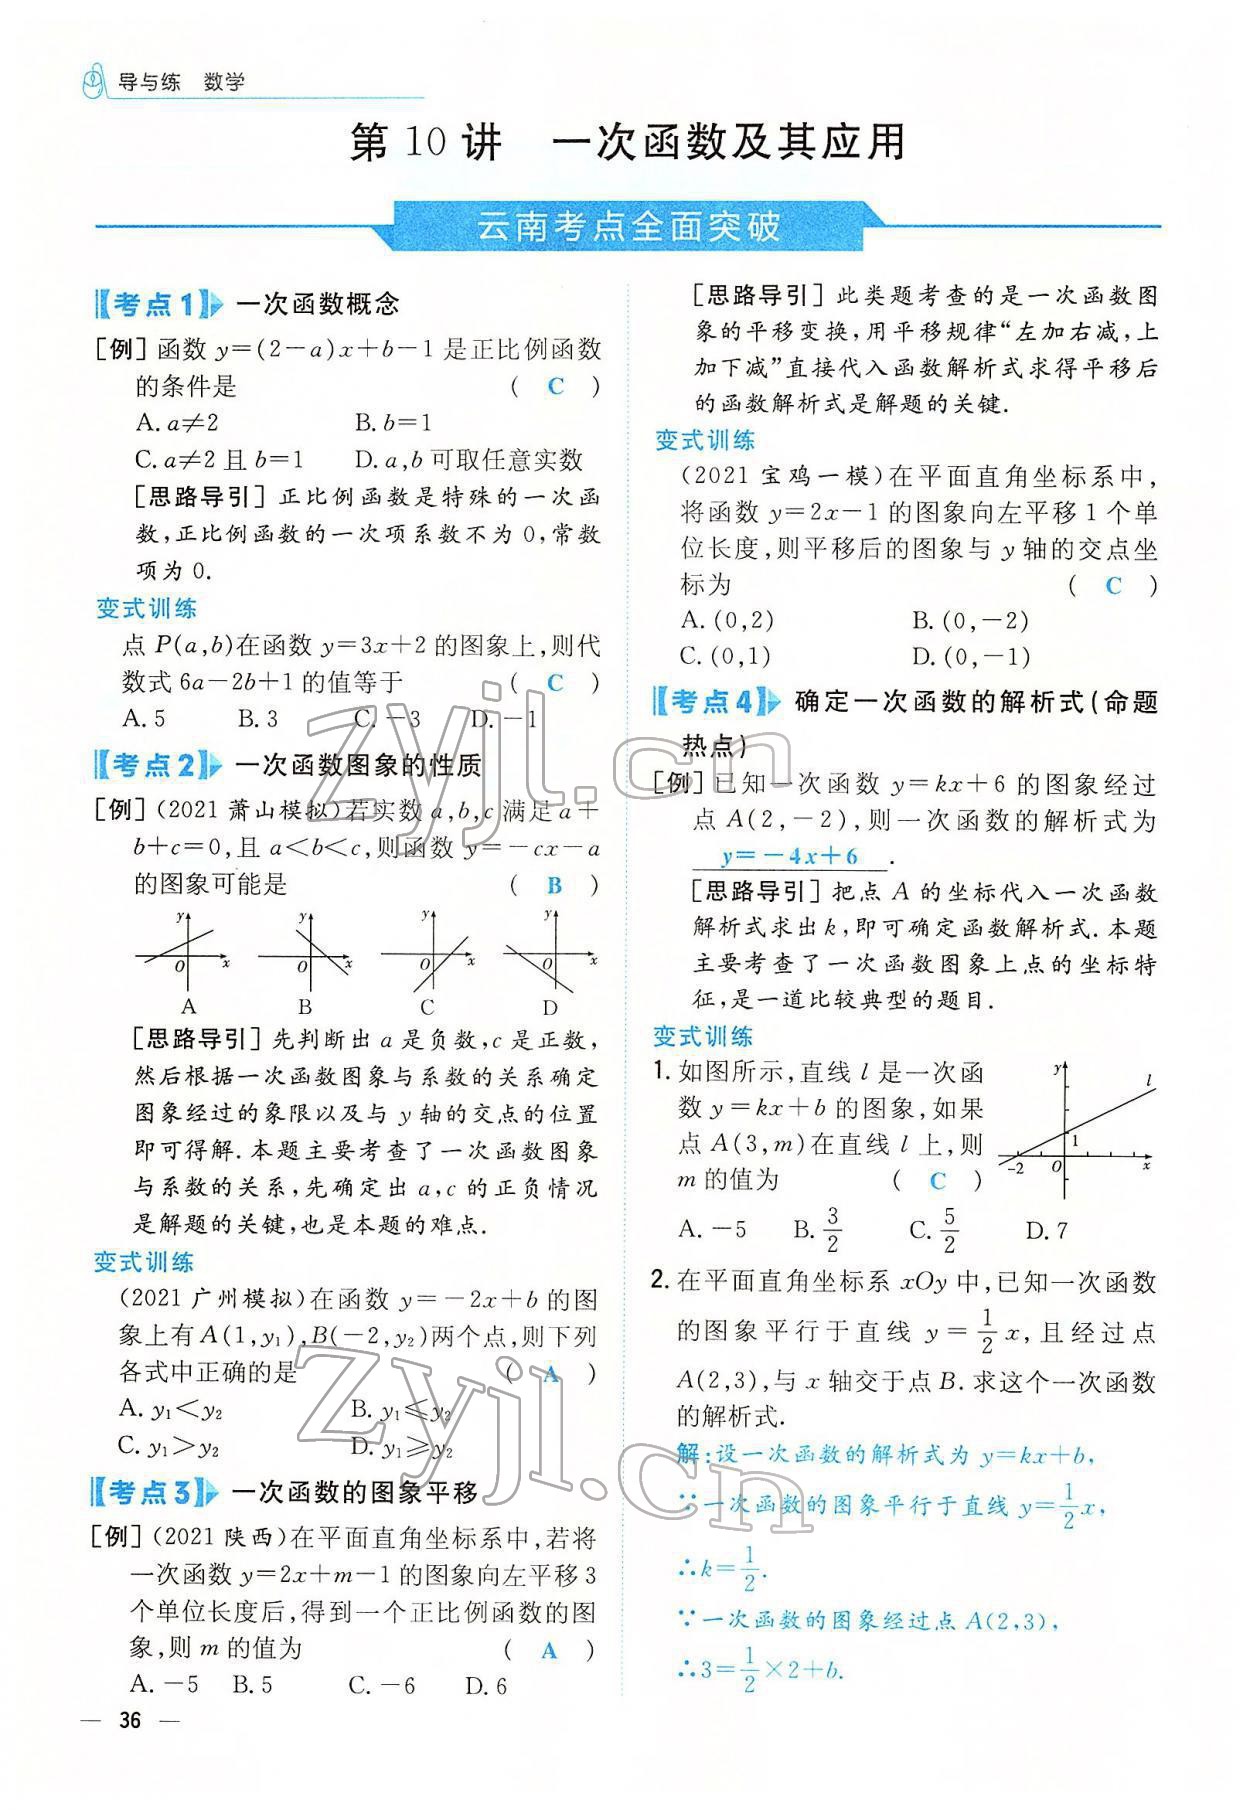 导与练 数学
第 10 讲 一次函数及其应用
云南考点全面突破
【考点1】 一次函数概念
[例] 函数 y=(2-a)x+b-1 是正比例函数
的条件是 ( C )
A. a≠2 B. b=1
C. a≠2 且 b=1 D. a,b 可取任意实数
[思路导引] 正比例函数是特殊的一次函
数,正比例函数的一次项系数不为 0,常数
项为 0.
变式训练
点 P(a,b)在函数 y=3x+2 的图象上,则代
数式 6a-2b+1 的值等于 ( C )
A. 5 B. 3 C. -3 D. -1
【考点2】 一次函数图象的性质
[例] (2021 萧山模拟)若实数 a,b,c 满足 a+
b+c=0,且 a<b<c,则函数 y=-cx-a
的图象可能是 ( B )
y y y y
O x O x O x O x
A B C D
[思路导引] 先判断出 a 是负数,c 是正数,
然后根据一次函数图象与系数的关系确定
图象经过的象限以及与 y 轴的交点的位置
即可得解.本题主要考查了一次函数图象
与系数的关系,先确定出 a,c 的正负情况
是解题的关键,也是本题的难点.
变式训练
(2021 广州模拟)在函数 y=-2x+b 的图
象上有 A(1,y₁),B(-2,y₂)两个点,则下列
各式中正确的是 ( A )
A. y₁<y₂ B. y₁≤y₂
C. y₁>y₂ D. y₁≥y₂
【考点3】 一次函数的图象平移
[例] (2021 陕西)在平面直角坐标系中,若将
一次函数 y=2x+m-1 的图象向左平移 3
个单位长度后,得到一个正比例函数的图
象,则 m 的值为 ( A )
A. -5 B. 5 C. -6 D. 6
— 36 —
[思路导引] 此类题考查的是一次函数图
象的平移变换,用平移规律“左加右减,上
加下减”直接代入函数解析式求得平移后
的函数解析式是解题的关键.
变式训练
(2021 宝鸡一模)在平面直角坐标系中,
将函数 y=2x-1 的图象向左平移 1 个单
位长度,则平移后的图象与 y 轴的交点坐
标为 ( C )
A. (0,2) B. (0,-2)
C. (0,1) D. (0,-1)
【考点4】 确定一次函数的解析式(命题
热点)
[例] 已知一次函数 y=kx+6 的图象经过
点 A(2,-2),则一次函数的解析式为
y=-4x+6 .
[思路导引] 把点 A 的坐标代入一次函数
解析式求出 k,即可确定函数解析式.本题
主要考查了一次函数图象上点的坐标特
征,是一道比较典型的题目.
变式训练
1. 如图所示,直线 l 是一次函
数 y=kx+b 的图象,如果
点 A(3,m)在直线 l 上,则
m 的值为 ( C )
y l
1
-2 O x
A. -5 B. 3/2 C. 5/2 D. 7
2. 在平面直角坐标系 xOy 中,已知一次函数
的图象平行于直线 y=1/2x,且经过点
A(2,3),与 x 轴交于点 B.求这个一次函数
的解析式.
解:设一次函数的解析式为 y=kx+b,
∵一次函数的图象平行于直线 y=1/2x,
∴k=1/2.
∵一次函数的图象经过点 A(2,3),
∴3=1/2×2+b.
zyjl.cn
zyjl.cn